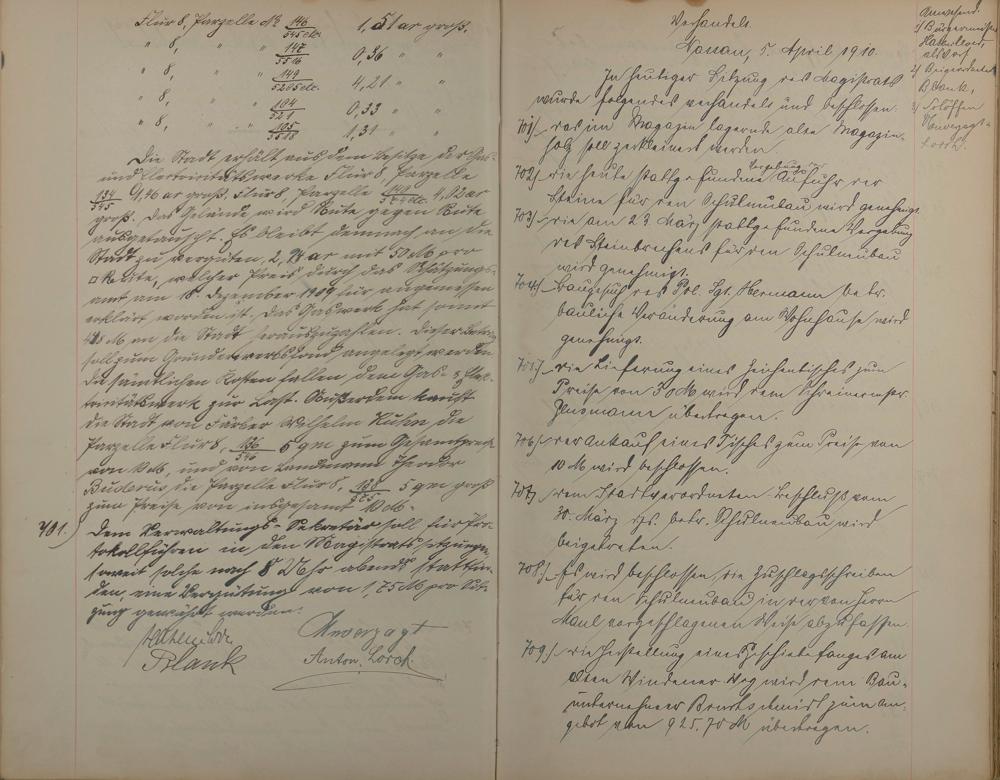 Flur 8, Parzelle № 146/545 etc. 1,51 ar groß.
" 8, " " 147/5516 0,36 " "
" 8, " " 149/5205 etc. 4,21 " "
" 8, " " 104/521 0,33 " "
" 8, " " 105/5518 1,31 " "
Die Stadt erhält aus dem Besitze der Gas-
und Electricitätswerke Flur 8, Parzelle
134/545 9,46 ar groß, Flur 8 Parzelle 4,02 ar
groß. Das Gelände wird Rute gegen Rute
ausgetauscht. Es bleibt demnach an die
Stadt zu vergüten, 2,94 ar mit 50 M pro
□ Rute, welcher Preis durch das Schätzungs-
amt am 18. Dezember 1909 für angemessen
erklärt worden ist. Das Gaswerk hat somit
M an die Stadt herauszuzahlen. Dieser Betrag
soll zum Grunderwerbsfond angelegt werden
die sämtlichen Kosten fallen dem Gas- & Elek-
trizitätswerk zur Last. Außerdem kauft
die Stadt von Färber Wilhelm Kuhn die
Parzelle Flur 8, 136/546 5 qm zum Gesamtpreise
von 10 M, und von Landmann Theodor
Buderus die Parzelle Flur 8, 5 qm groß
zum Preise von insgesamt 10 M.
701.) Dem Verwaltungs-Sekretär soll für Pro-
tokollführen in den Magistratssitzungen
soweit solche nach 8 Uhr abends stattfin-
den, eine Vergütung von 1,75 M pro Sit-
zung gewährt werden.
Unverzagt
Blank Anton Lorch
Verhandelt
Nonau, 5. April 1910.
Anwesend:
1) Bürgermeister
2) Beigeordneter
Blank,
3) Schöffen
Unverzagt
Lorch.
In heutiger Sitzung des Magistrats
wurde folgendes verhandelt und beschlossen.
701) das im Magazin lagernde alte Magazin-
holz soll zerkleinert werden
702) die heute stattgefundene Vergebung der Anfuhr der
Steine für den Schulneubau wird genehmigt
703) die am 23. März stattgefundene Vergebung
des Steinbrechens für den Schulneubau
wird genehmigt.
704) Baugesuch des Pol. Sgt. Hermann betr.
bauliche Veränderung am Wohnhause wird
genehmigt.
705) die Lieferung eines Zeichentisches zum
Preise von M wird dem Schreinermstr.
übertragen.
706) der Ankauf eines Tisches zum Preise von
10 M wird beschlossen.
707) dem Stadtverordneten-Beschluß vom
30. März ds. betr. Schulneubau wird
beigetreten.
708) Es wird beschlossen, die Zuschlagsschreiben
für den Schulneubau in der von Herrn
Maul vorgeschlagenen Weise abzufassen
709) die Herstellung eines Geschiebefanges am
alten Windener Weg wird dem Bau-
unternehmer zum An-
gebot von 925,70 M übertragen.